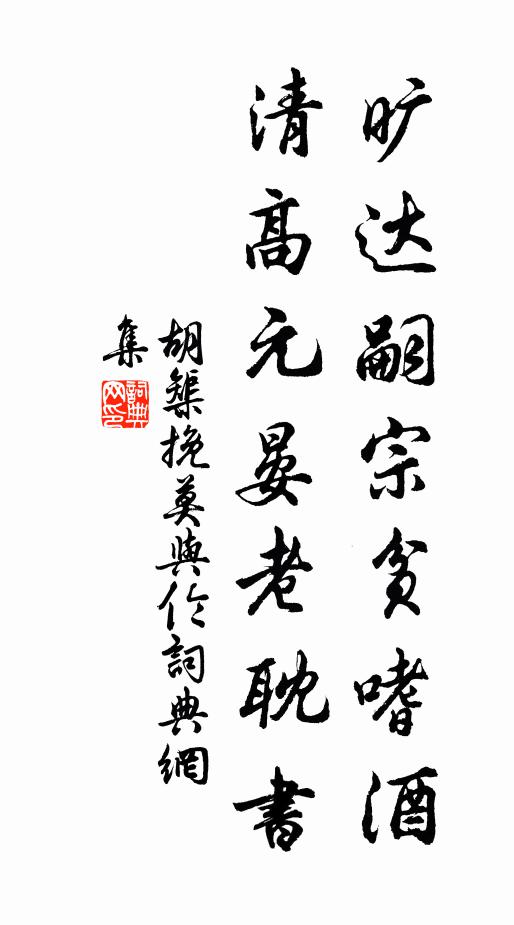 旷达嗣宗贫嗜酒
清高元晏老耽书
胡榘挽莫与伦詞典網
集
詞典
网印